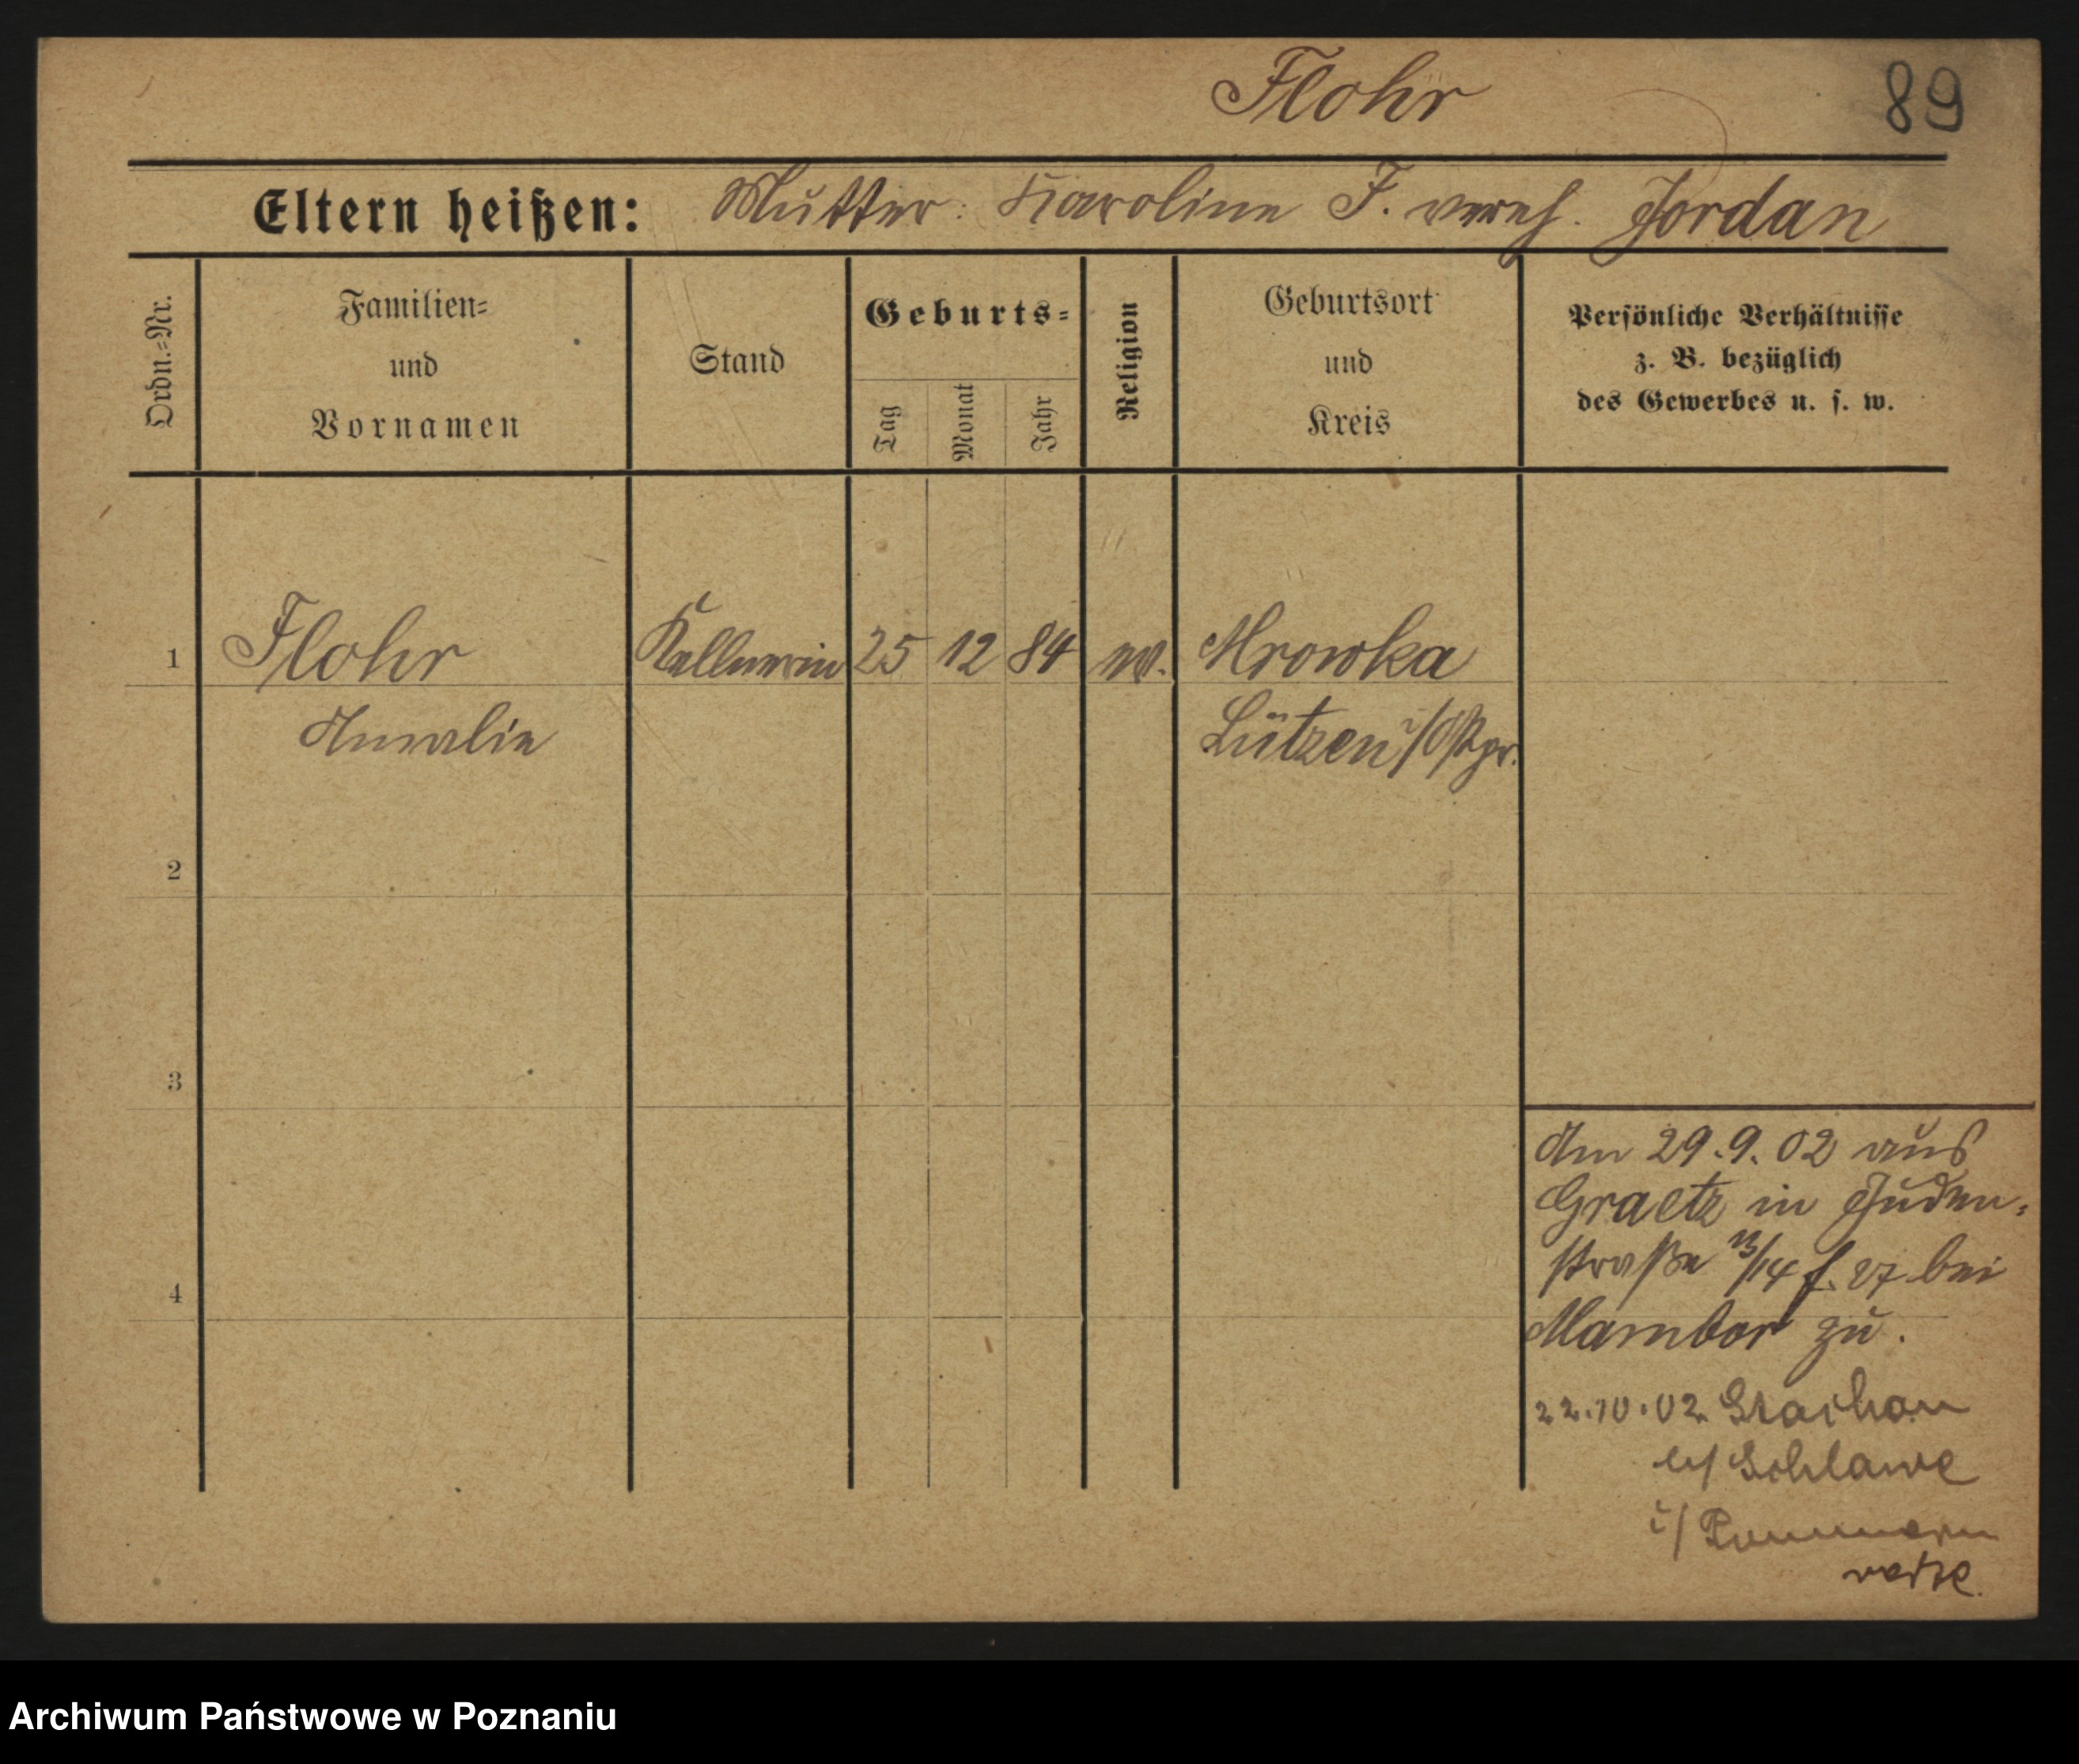 Flohr
89
Eltern heißen: Mutter: Karoline F. vereh. Jordan
Ordn.=Nr.
Familien=
und
Vornamen
Stand
Geburts=
Tag
Monat
Jahr
Religion
Geburtsort
und
Kreis
Persönliche Verhältnisse
z. B. bezüglich
des Gewerbes u. s. w.
1 Flohr Kellnerin 25 12 84 ev. Mrowka
Amalie Lützen i/Ostpr.
2
3
4
Am 29.9.02 aus
Graetz in Juden-
straße 13/14 f. 27 bei
Mambor zu.
22.10.02
b/ Schlawe
i/ Pommern
Archiwum Państwowe w Poznaniu